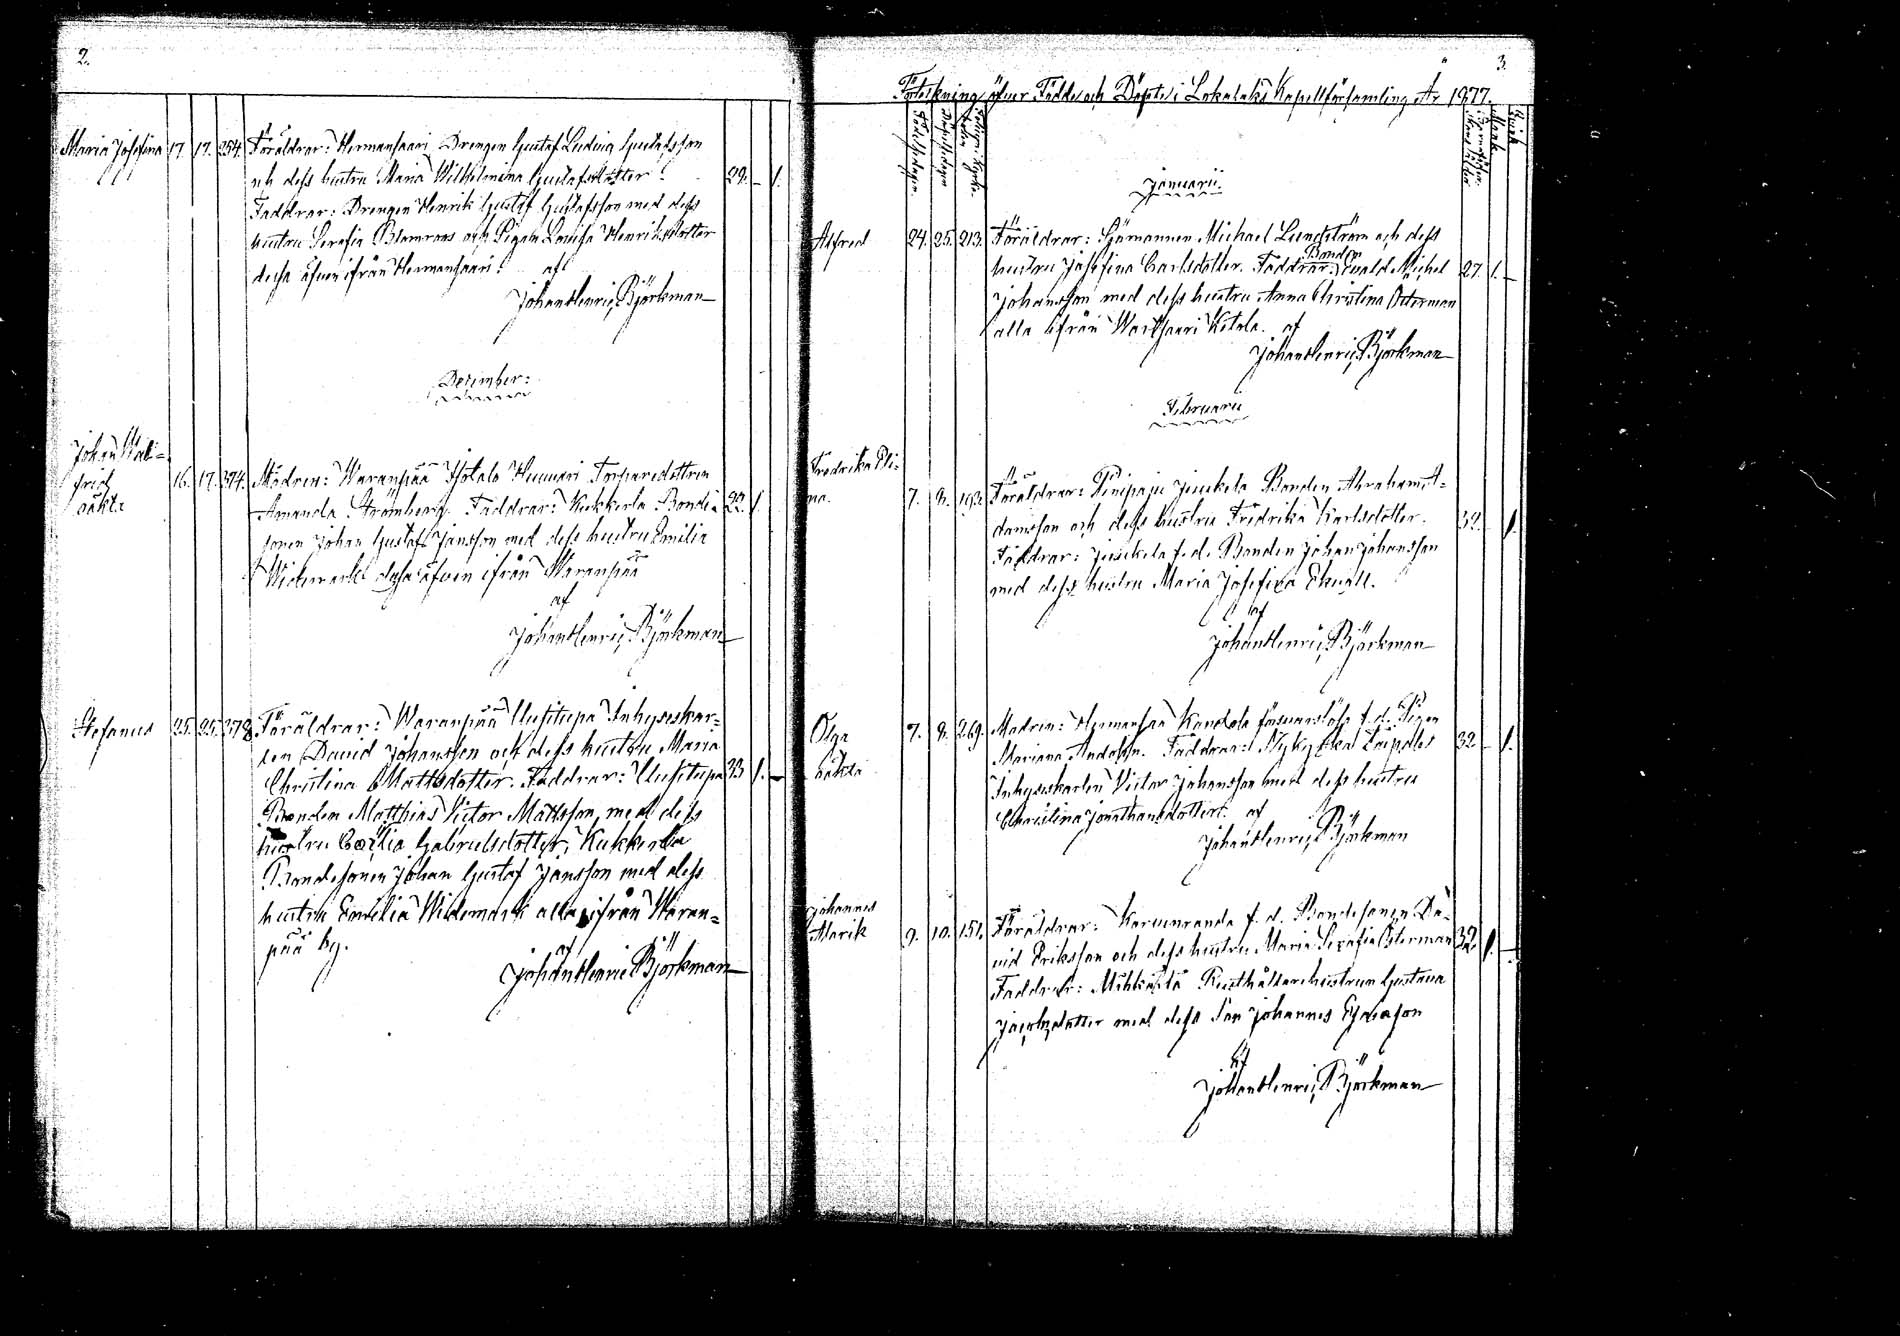 2.
Maria Josefina 17. 17. 254. Föräldrar: Hermansaari Drengen Gustaf Ludvig Gustafsson
och dess hustru Maria Wilhelmina Gustafsdotter. 22. – 1.
Faddrar: Drengen Henrik Gustaf Gustafsson med dess
hustru Serafia Blomroos och Pigan Lovisa Henriksdotter
dessa äfven ifrån Hermansaari. af
Johan Henric Björkman
December:
Johan Wal=
frid 16. 17. 374. Modren: Waranpää Torparedottren
oäkta Amanda Strömberg. Faddrar: Kukkerla Bonde= 22. 1.
sonen Johan Gustaf Jansson med dess hustru Emilia
Widemark dessa äfven ifrån Waranpää
af
Johan Henric Björkman
Stefanus 25. 25. 378. Föräldrar: Waranpää Uusitupa Inhyseskar=
len David Johansson och dess hustru Maria
Christina Mattsdotter. Faddrar: Uusitupa 33 1. –
Bonden Matthias Victor Mattsson med dess
hustru Cecilia Gabrielsdotter, Kukkerla
Bondesonen Johan Gustaf Jansson med dess
hustru Emilia Widemark alla ifrån Waran=
pää by.
af
Johan Henric Björkman
3.
Förteckning öfver Födde och Döpte i Lokalaks Kapellförsamling År 1877.
Födelsedagen. Döpelsedagen
Januarii.
Alfred 24. 25. 213. Föräldrar: Sjömannen Michael Lundström och dess
hustru Josefina Carlsdotter. Faddrar: Bonden Evald Michel 27. 1. –
Johansson med dess hustru Anna Christina Österman
alla ifrån Wartsaari Ketola. af
Johan Henric Björkman
Februarii
Fredrika Eli=
na. 7. 8. 193. Föräldrar: Pinipaju Juusela Bonden Abraham A=
damsson och dess hustru Fredrika Karlsdotter. 32. – 1.
Faddrar: f. d. Bonden Johan Johansson
med dess hustru Maria Josefina Ekvall.
af
Johan Henric Björkman
Olga 7. 8. 269. Modren: Hermansaa Kandola försvarslösa f. d. Pigan
oäkta Mariana Andersn. Faddrar: 32. – 1.
Inhyseskarlen Victor Johansson med dess hustru
Christina Jonathansdotter. af
Johan Henric Björkman
Johannes
Alarik 9. 10. 151. Föräldrar: Karinranda f. d. Bondesonen Da=
vid Eriksson och dess hustru Maria Serafia Österman 32. 1. –
Faddrar: Mihkola Rusthållarehustrun Gustava
Jacobsdotter med dess Son Johannes Esaiasson
af
Johan Henric Björkman